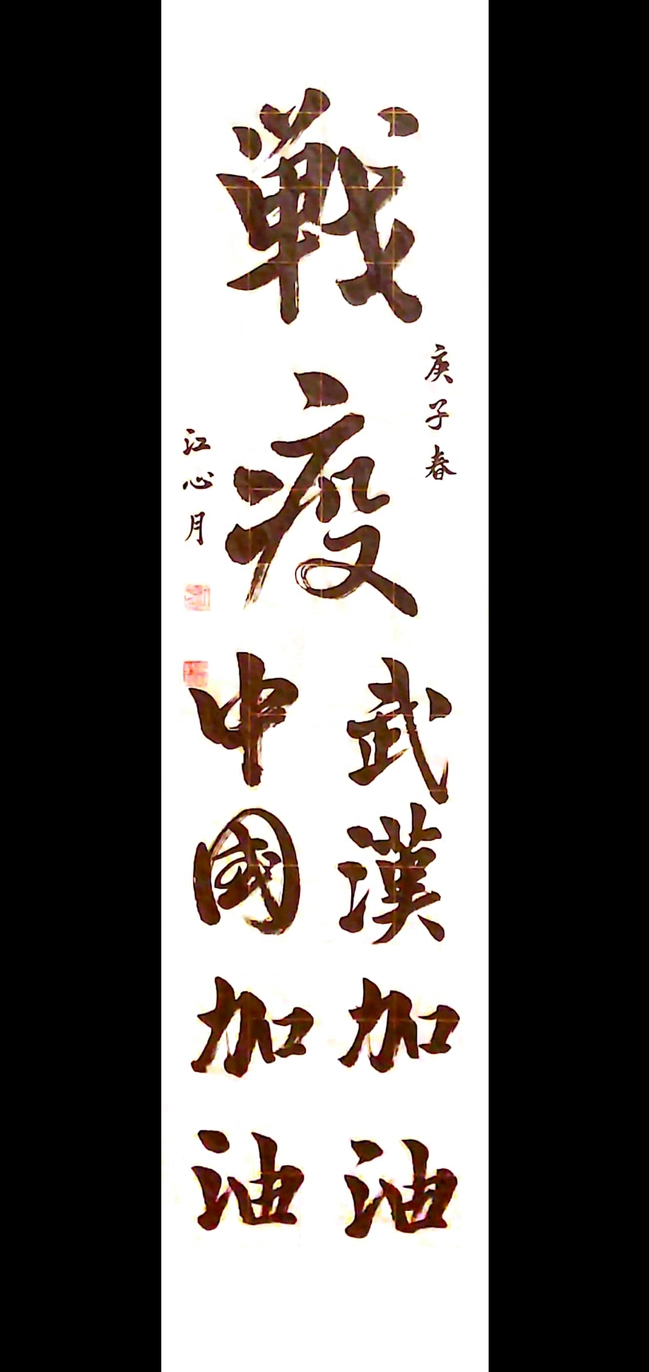 戦疫
庚子春
武漢加油
中國加油
江心月